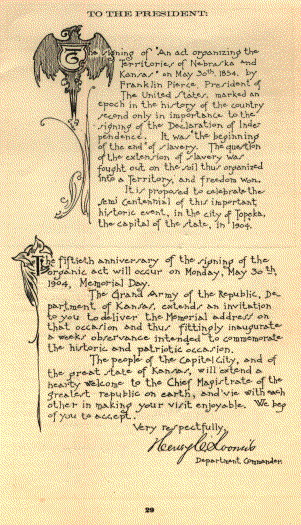 TO THE PRESIDENT:
The signing of "An act organizing the
Territories of Nebraska and
Kansas" on May 30th, 1854, by
Franklin Pierce, President of
The United States, marked an
epoch in the history of the country
second only in importance to the
signing of the Declaration of Inde-
pendence. It was "the beginning
of the end" of slavery. The question
of the extension of slavery was
fought out on the soil thus organized
into a Territory, and freedom won.
It is proposed to celebrate the
Semi Centennial of this important
historic event, in the city of Topeka,
the capital of the state, in 1904.
The fiftieth anniversary of the signing of the
organic act will occur on Monday, May 30th,
1904, Memorial Day.
The Grand Army of the Republic, De-
partment of Kansas, extends an invitation
to you to deliver the Memorial address on
that occasion and thus fittingly inaugurate
a weeks observance intended to commemorate
the historic and patriotic occasion.
The people of the Capital City, and of
the great state of Kansas, will extend a
hearty welcome to the Chief Magistrate of the
greatest republic on earth, and vie with each
other in making your visit enjoyable. We beg
of you to accept.
Very respectfully,
Henry C. Loomis
Department Commander.
29